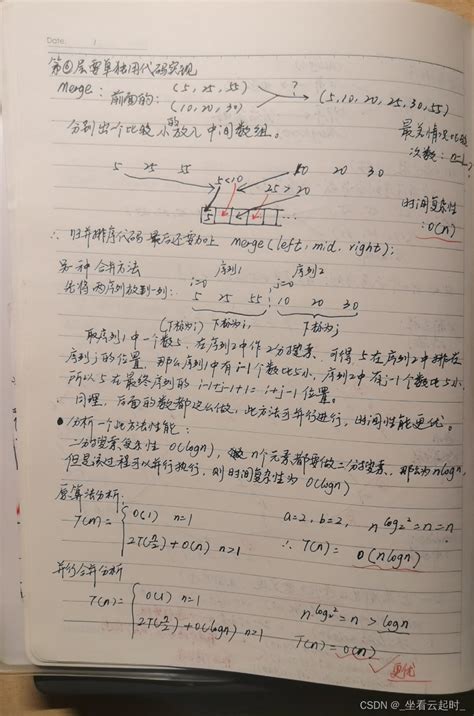 Date: /
第④层要单独用代码实现
Merge: 前面的: (5, 25, 55) ?
(10, 20, 30) (5, 10, 20, 25, 30, 55)
分别出个比较,小的放入中间数组。
最差情况比较
次数: n-1
5 25 55 10 20 30
5<10 25>20
5 ...
时间复杂性
: O(n)
∴ 归并排序代码最后还要加上 merge(left, mid, right);
另一种合并方法 序列1 序列2
先将两序列放到一列: i=0 j=0
5 25 55 10 20 30
(下标为i) 下标为i, 下标为j
取序列1中一个数5, 在序列2中作2分搜索, 可得5在序列2中排在
序列j的位置, 那么序列1中有i-1个数比5小, 序列2中有j-1个数比5小
所以5在最终序列的 i-1+j-1+1 = i+j-1 位置。
同理, 后面的数都这么做, 此方法可并行进行, 时间性能更优。
●分析一个此方法性能:
二分搜索复杂性 O(logn), n个元素都要做二分搜索, 那么为nlogn,
但是该过程可以并行执行, 则时间复杂性为O(logn)
原算法分析:
T(n)= { O(1) n=1 a=2, b=2, n^log₂2 = n = n
2T(n/2)+O(n) n>1 ∴ T(n)= O(nlogn)
并行合并分析
T(n)= { O(1) n=1 n^log₂2 = n > logn
2T(n/2)+O(logn) n>1 T(n)=O(n)
更优
CSDN @_坐看云起时_